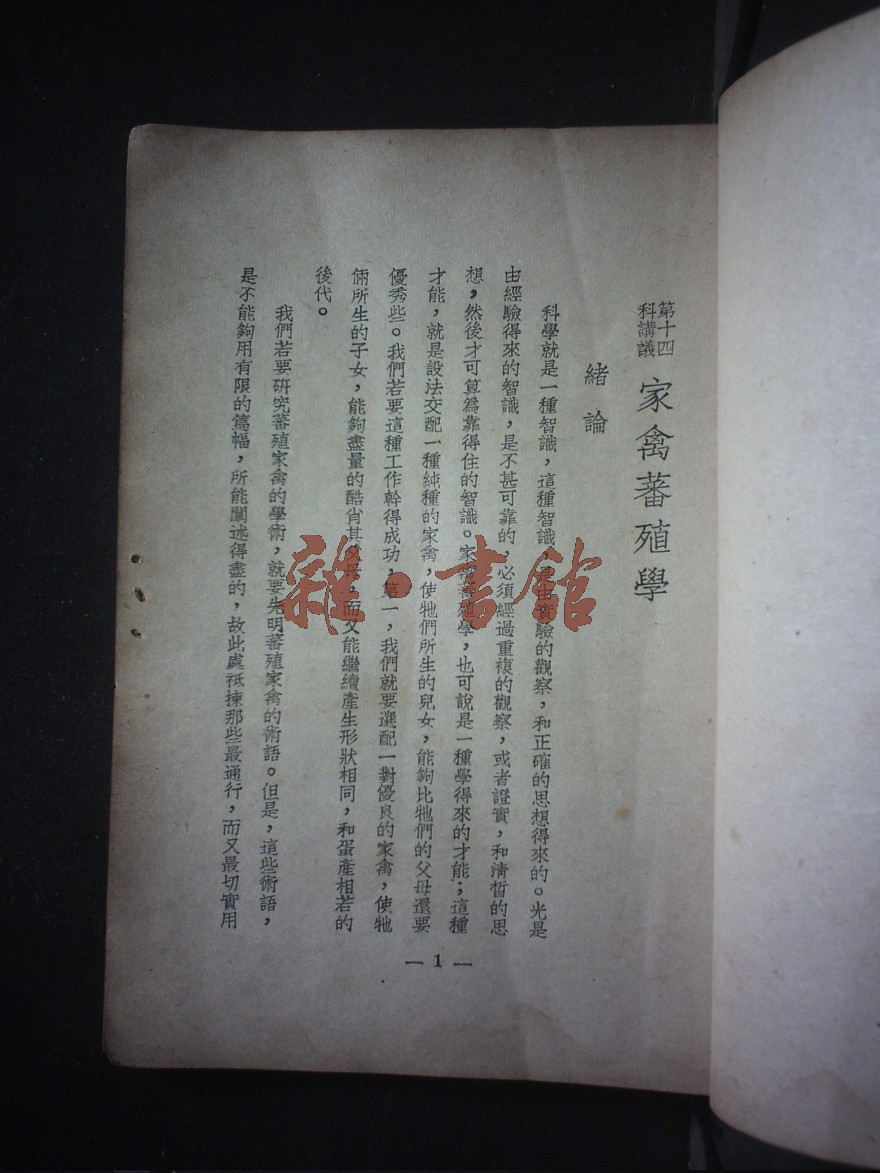 第十四
科講義
家禽蕃殖學
緒論
科學就是一種智識，這種智識，是由實驗的觀察，和正確的思想得來的。光是
由經驗得來的智識，是不甚可靠的，必須經過重複的觀察，或者證實，和清晳的思
想，然後才可算爲靠得住的智識。家禽蕃殖學，也可說是一種學得來的才能；這種
才能，就是設法交配一種純種的家禽，使牠們所生的兒女，能夠比牠們的父母還要
優秀些。我們若要這種工作幹得成功，第一，我們就要選配一對優良的家禽，使牠
倆所生的子女，能夠盡量的酷肖其父母，而又能繼續產生形狀相同，和蛋產相若的
後代。
我們若要研究蕃殖家禽的學術，就要先明蕃殖家禽的術語。但是，這些術語，
是不能夠用有限的篇幅，所能闡述得盡的，故此處祗揀那些最通行，而又最切實用
— 1 —
雜·書館